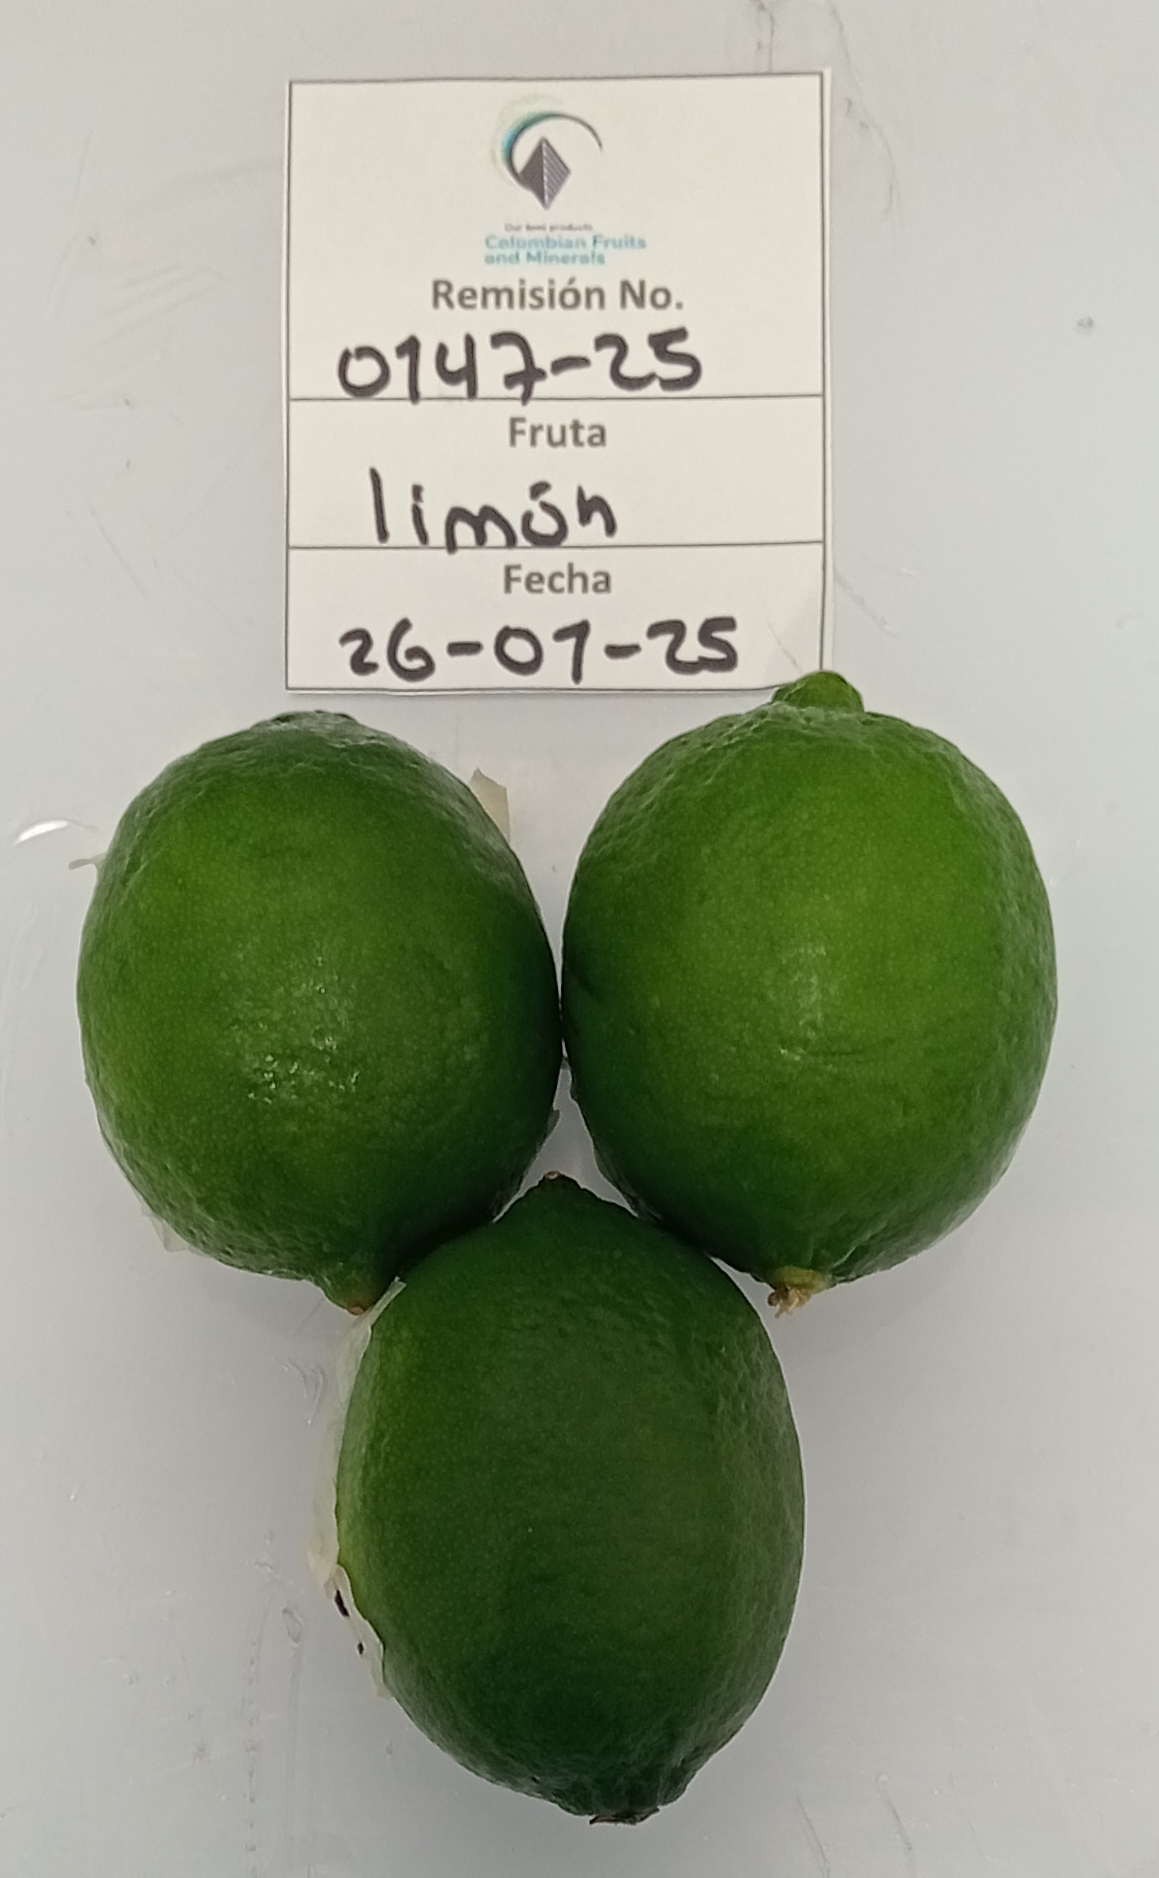 Our best products
Colombian Fruits
and Minerals
Remisión No.
0147-25
Fruta
limón
Fecha
26-07-25